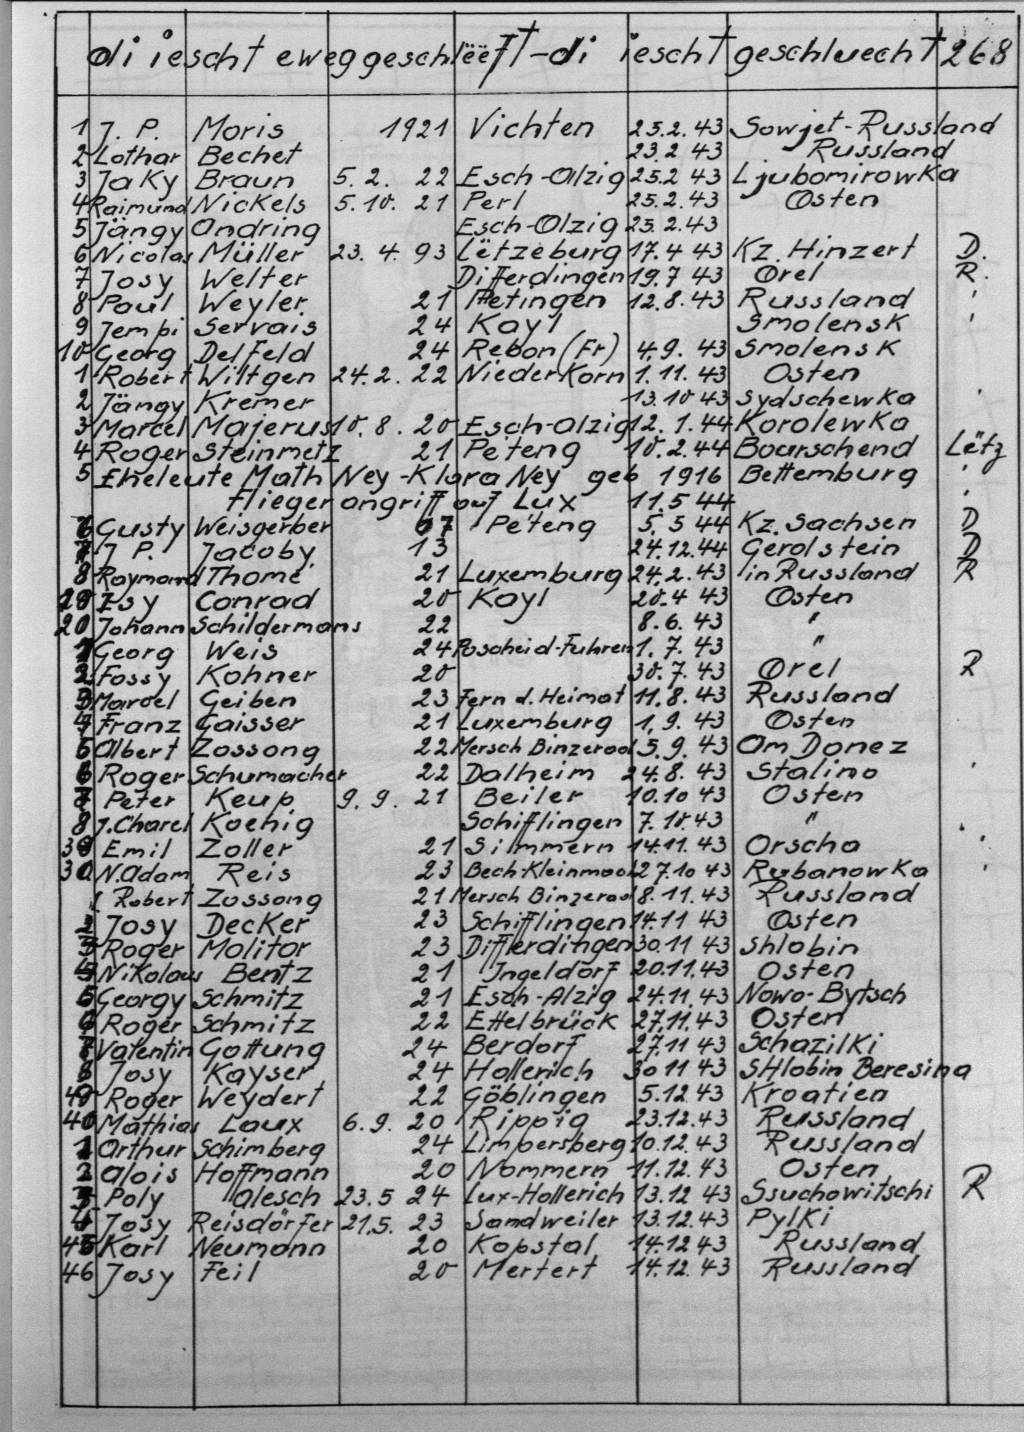 di iescht eweggeschlëëft - di iescht geschluecht 268
1 J. P. Moris 1921 Vichten 25.2.43 Sowjet-Russland
2 Lothar Bechet 23.2 43 Russland
3 Jaky Braun 5.2. 22 Esch-Alzig 25.2 43 Ljubomirowka
4 Raimund Nickels 5.10. 21 Perl 25.2.43 Osten
5 Jängy Andring Esch-Olzig 25.2.43
6 Nicolas Müller 23.4.93 Lëtzeburg 17.4 43 Kz. Hinzert D.
7 Josy Welter Differdingen 19.7 43 Orel R.
8 Paul Weyler 21 Petingen 12.8.43 Russland '
9 Jempi Servais 24 Kayl Smolensk '
10 Georg Delfeld 24 Rebon (Fr) 4.9. 43 Smolensk
1 Robert Wiltgen 24.2. 22 Niederkorn 1.11.43 Osten
2 Jängy Kremer 13.10 43 Sydschewka .
3 Marcel Majerus 10.8. 20 Esch-Alzig 12.1.44 Korolewka
4 Roger Steinmetz 21 Péteng 10.2.44 Bourschend Lëtz
5 Eheleute Math Ney-Klara Ney geb 1916 Bettemburg '
Fliegerangriff auf Lux 11.5 44 .
6 Gusty Weisgerber 07 Péteng 5.5 44 Kz. Sachsen D
7 J P. Jacoby. 13 24.12.44 Gerolstein D
8 Raymond Thomé 21 Luxemburg 24.2.43 in Russland R
Isy Conrad 20 Kayl 20.4 43 Osten
20 Johann Schildermans 22 8.6. 43 "
Georg Weis 24 Poscheid-Fuhren 1.7.43 "
2 Fossy Kohner 20 30.7.43 Orel R
3 Marcel Geiben 23 Fern d. Heimat 11.8.43 Russland
4 Franz Gaisser 21 Luxemburg 1.9. 43 Osten
5 Albert Zossong 22 Mersch Binzerod 5.9. 43 Am Donez
6 Roger Schumacher 22 Dalheim 24.8. 43 Stalino '
7 Peter Keup 9.9. 21 Beiler 10.10 43 Osten
8 J. Charel Koenig Schifflingen 7.10.43 "
Emil Zoller 21 Simmern 14.11.43 Orscha
30 N. Adam Reis 23 Bech-Kleinmach 27.10 43 Rubanowka
Robert Zossong 21 Mersch Binzerod 8.11.43 Russland
2 Josy Decker 23 Schifflingen 14.11 43 Osten
3 Roger Molitor 23 Differdingen 30.11 43 Shlobin
4 Nikolaus Bentz 21 Ingeldorf 20.11.43 Osten
5 Georgy Schmitz 21 Esch-Alzig 24.11.43 Nowo-Bytsch
6 Roger Schmitz 22 Ettelbrück 27.11.43 Osten
7 Valentin Gottung 24 Berdorf 27.11 43 Schazilki
8 Josy Kayser 24 Hollerich 30 11 43 SHlobin Beresina
Roger Weydert 22 Göblingen 5.12 43 Kroatien
40 Mathias Laux 6.9. 20 Rippig 23.12.43 Russland
1 Arthur Schimberg 24 Limpersberg 10.12.43 Russland
2 Alois Hoffmann 20 Nommern 11.12.43 Osten
3 Poly Olesch 23.5 24 Lux-Hollerich 13.12 43 Ssuchowitschi R
4 Josy Reisdörfer 21.5. 23 Sandweiler 13.12.43 Pylki
45 Karl Neumann 20 Kopstal 14.12 43 Russland
46 Josy Feil 20 Mertert 14.12.43 Russland